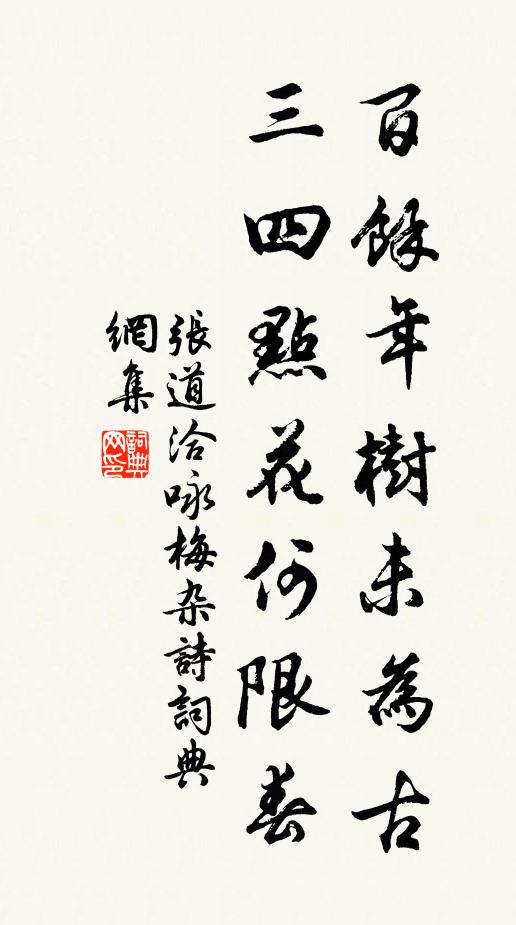 百餘年樹未為古
三四點花何限春
張道洽咏梅杂詩詞典
網集
詞典網印